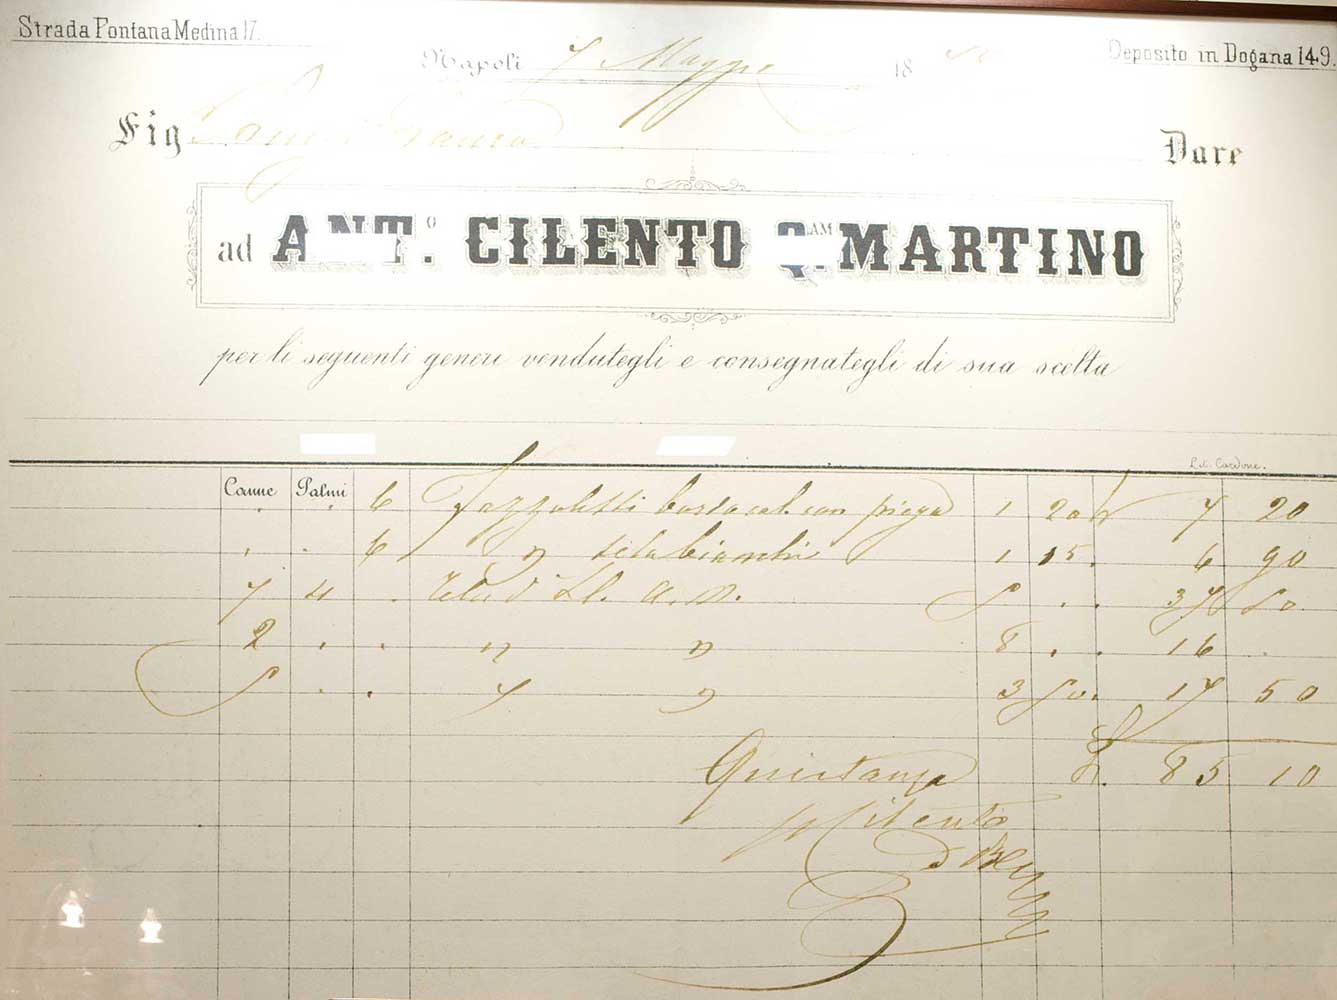 Strada Fontana Medina 17.
Deposito in Dogana 149.
Napoli 7 Maggio 18
Sig
Dare
ad ANT.º CILENTO Q.AM MARTINO
per li seguenti generi vendutegli e consegnategli di sua scelta
Lit. Cardone.
Canne Palmi 6 Fazzoletti con piega 1 20 7 20
. . 6 " tela bianchi 1 15. 6 90
7 4 . Tela 5 . . 37 50
2 . . " " 8 . . 16 .
5 . . " " 3 50. 17 50
Quietanza L. 85 10
Cilento